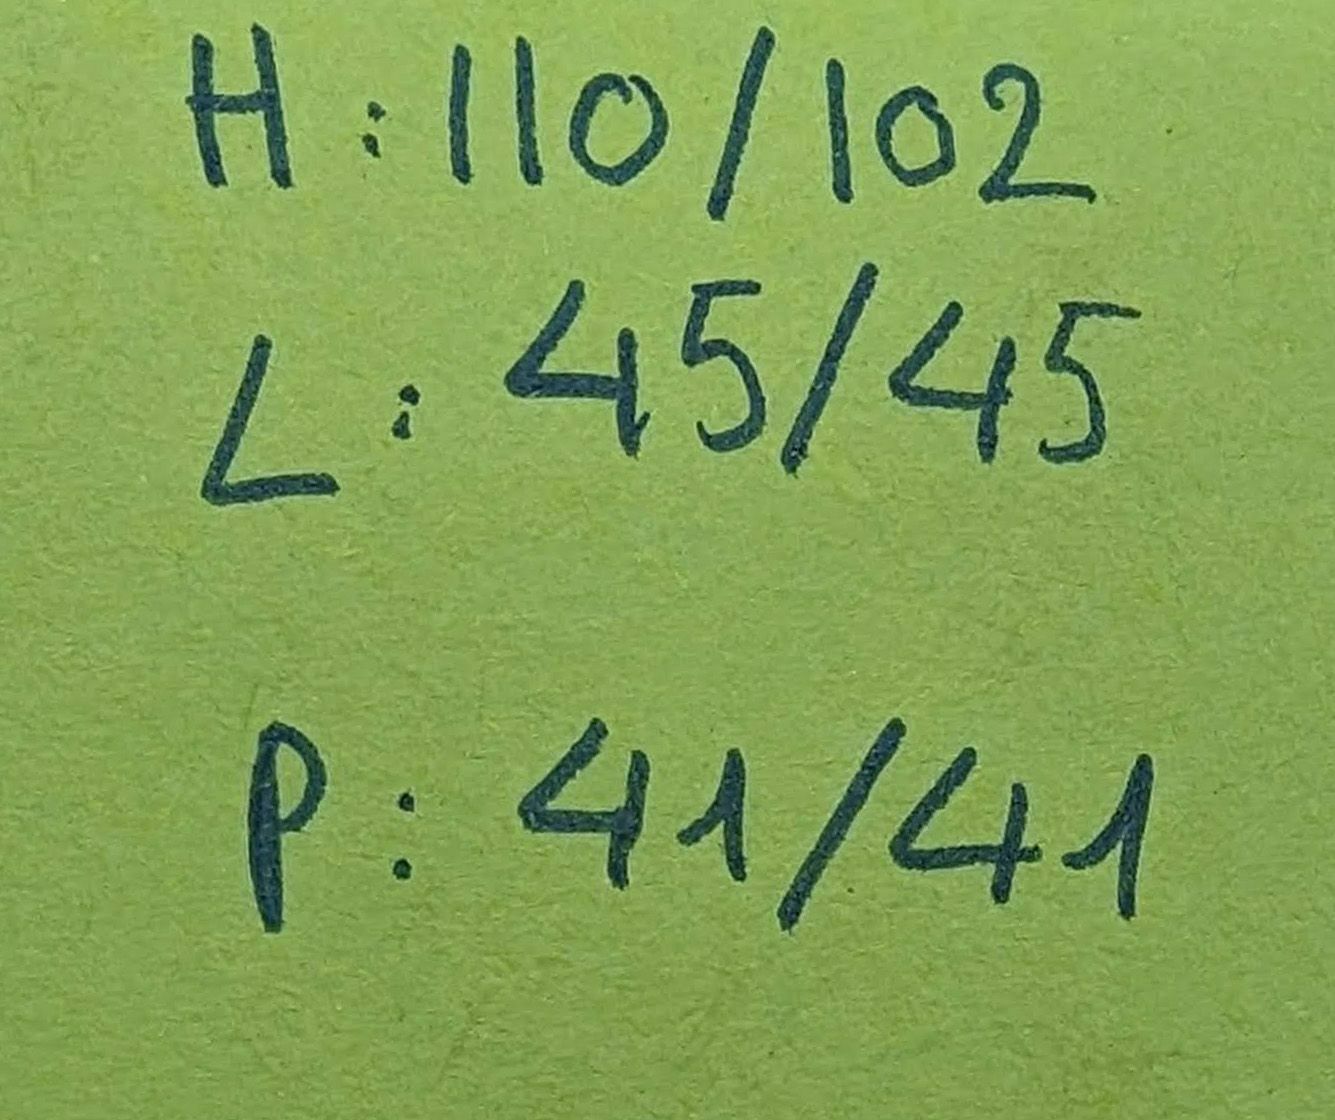 H: 110/102
L: 45/45
P: 41/41